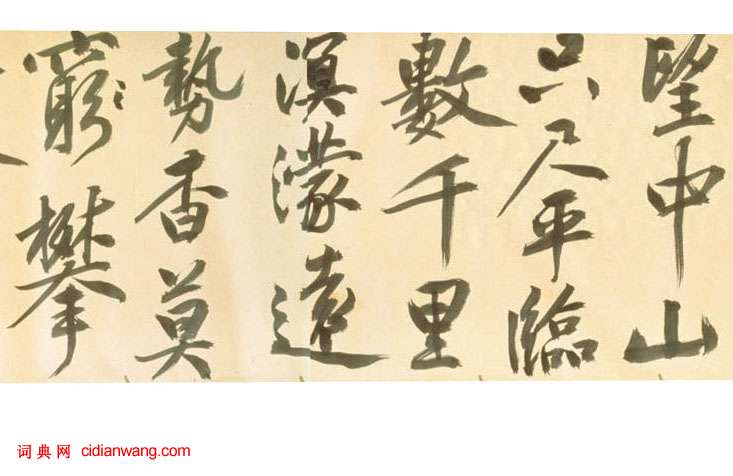 望中山
只尺平臨
數千里
溟濛遠
勢香莫
窮攀
词典网 cidianwang.com